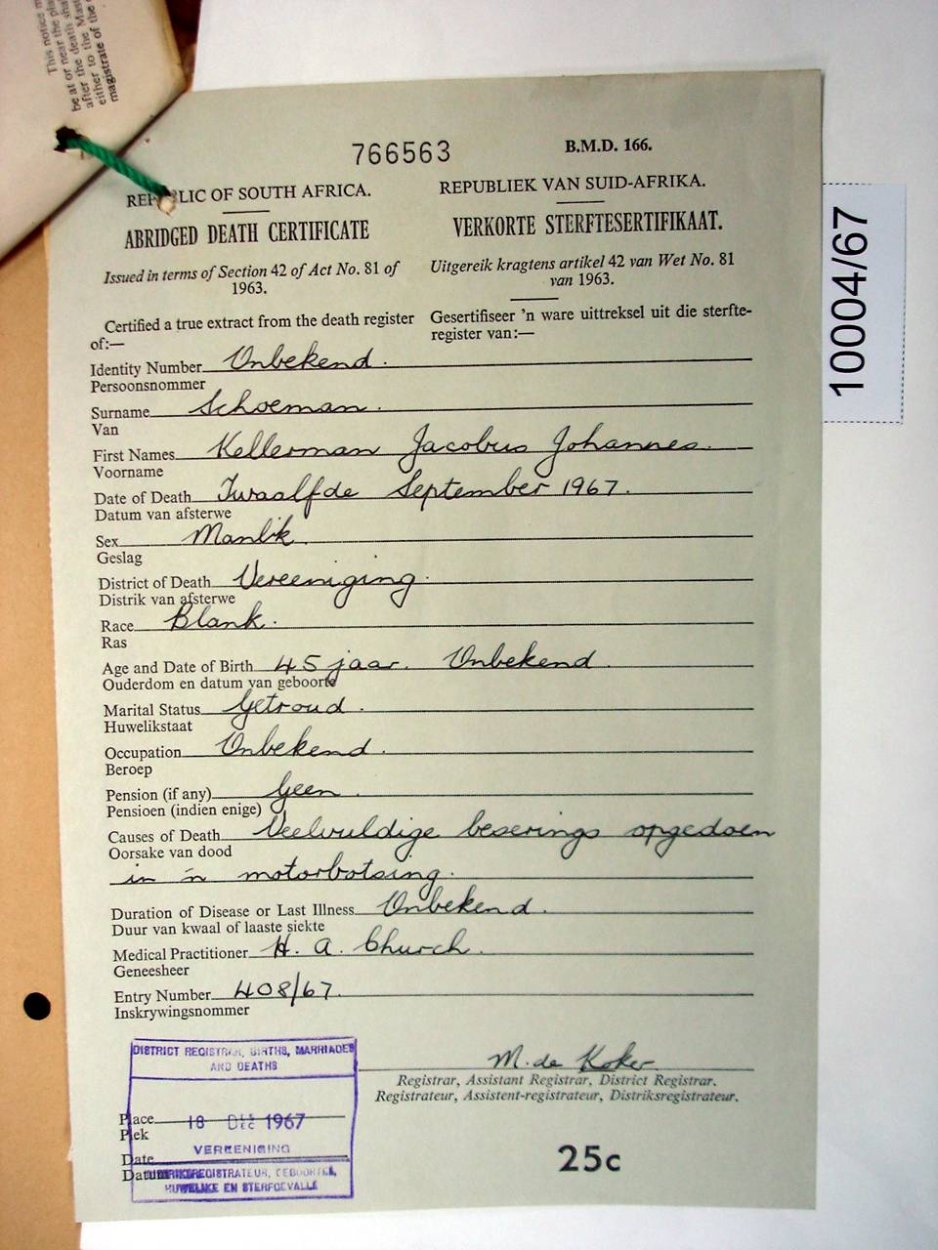 This notice m
be at or near the pla
after the death sha
either to the Mas
magistrate of the
766563
B.M.D. 166.
REP LIC OF SOUTH AFRICA.
REPUBLIEK VAN SUID-AFRIKA.
ABRIDGED DEATH CERTIFICATE
VERKORTE STERFTESERTIFIKAAT.
Issued in terms of Section 42 of Act No. 81 of
1963.
Uitgereik kragtens artikel 42 van Wet No. 81
van 1963.
Certified a true extract from the death register
of:—
Gesertifiseer 'n ware uittreksel uit die sterfte-
register van:—
Identity Number Onbekend.
Persoonsnommer
Surname Schoeman.
Van
First Names Kellerman Jacobus Johannes.
Voorname
Date of Death Twaalfde September 1967.
Datum van afsterwe
Sex Manlik
Geslag
District of Death Vereeniging.
Distrik van afsterwe
Race Blank.
Ras
Age and Date of Birth 45 jaar. Onbekend.
Ouderdom en datum van geboorte
Marital Status Getroud.
Huwelikstaat
Occupation Onbekend.
Beroep
Pension (if any) Geen.
Pensioen (indien enige)
Causes of Death Veelvuldige beserings opgedoen
Oorsake van dood
in 'n motorbotsing.
Duration of Disease or Last Illness Onbekend.
Duur van kwaal of laaste siekte
Medical Practitioner H. A. Church.
Geneesheer
Entry Number 408/67.
Inskrywingsnommer
M. de Koker
Registrar, Assistant Registrar, District Registrar.
Registrateur, Assistent-registrateur, Distriksregistrateur.
DISTRICT REGISTRAR, BIRTHS, MARRIAGES
AND DEATHS
Place
18 DEC 1967
Plek
VEREENIGING
Date
Datum
DISTRIKSREGISTRATEUR, GEBOORTES,
HUWELIKE EN STERFGEVALLE
25c
10004/67